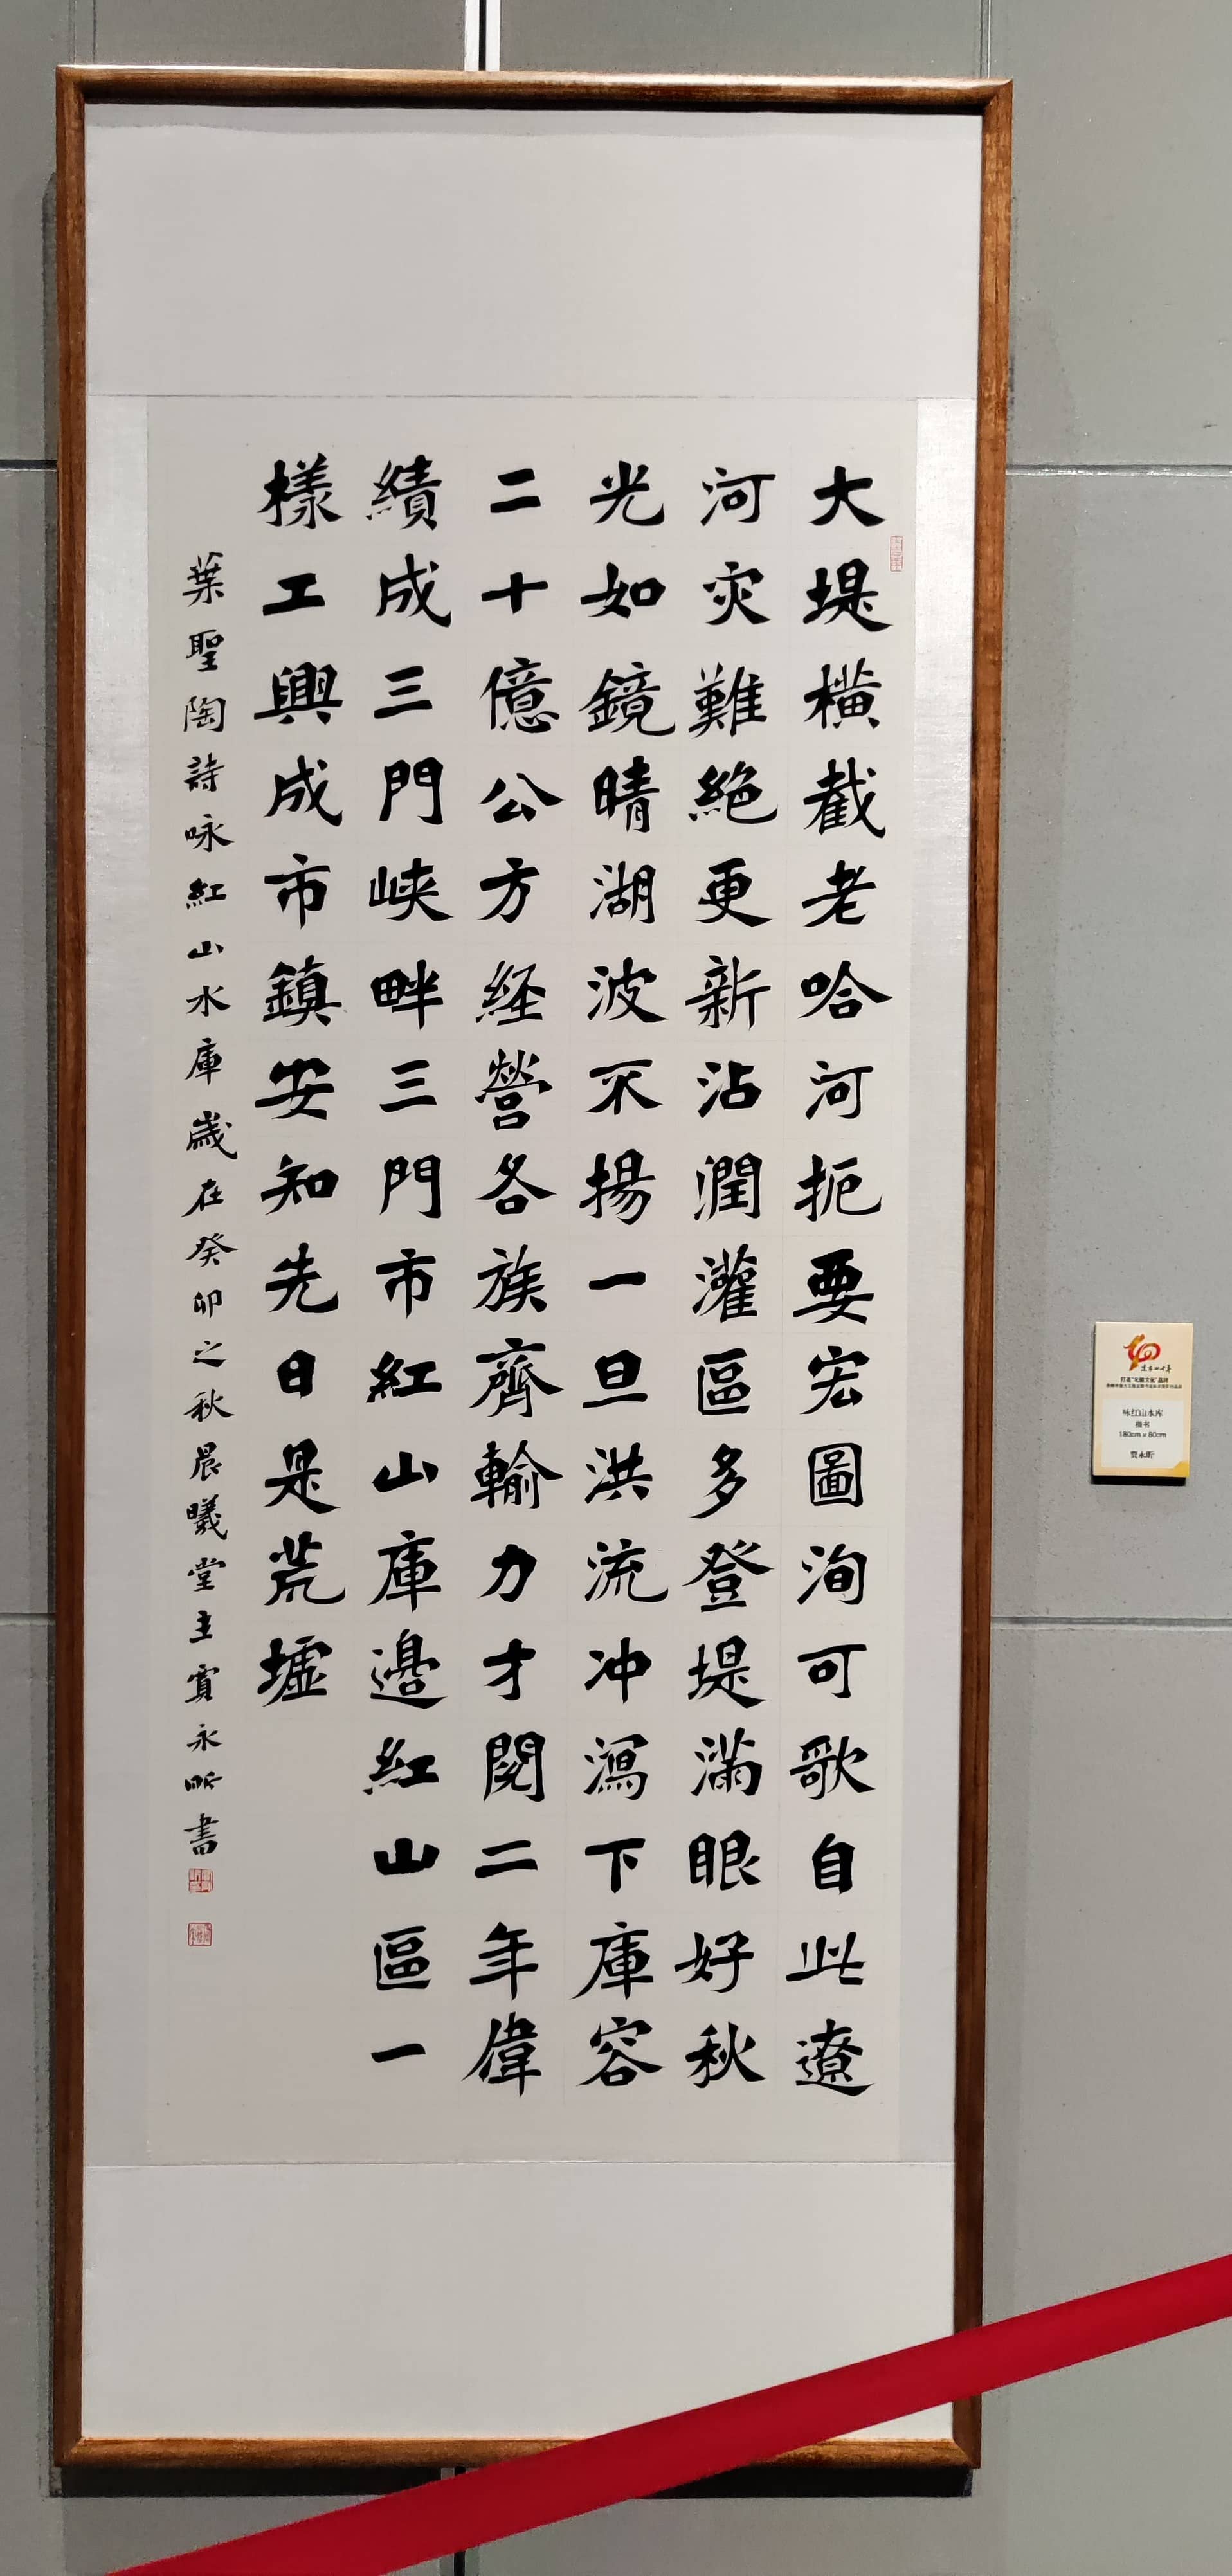 大堤橫截老哈河扼要宏圖洵可歌自此遼
河灾難絶更新沾潤灌區多登堤滿眼好秋
光如鏡晴湖波不揚一旦洪流冲瀉下庫容
二十億公方経營各族齊輸力才閱二年偉
績成三門峽畔三門市紅山庫邊紅山區一
樣工興成市鎮安知先日是荒墟
葉聖陶詩咏紅山水庫歲在癸卯之秋晨曦堂主賈永昕書
咏红山水库
楷书
180cm x 80cm
贾永昕